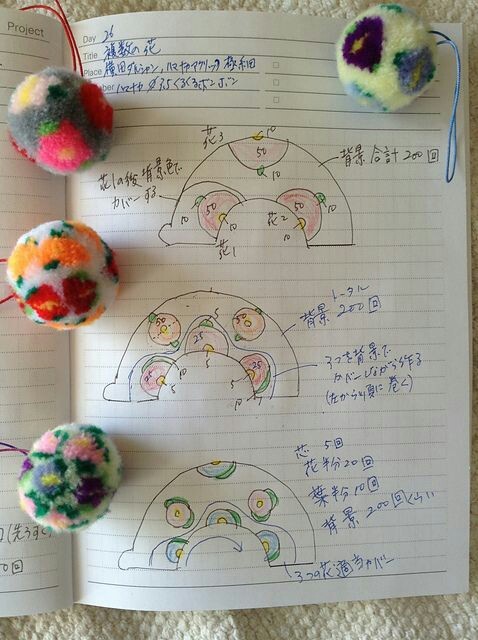 Project
Day 26
Title 複数の花
Place 横田ダルシャン, ハマナカアクリック 極細
ber ハマナカ φ3.5くるくるボンボン
花3
10
50
10
背景 合計200回
花1の後 背景色で
カバーする
10
50
10
花1
花2
10
50
10
トータル
背景 200回
50
50
5
25
25
5
25
5
5
10
3つを背景で
カバーしながら作る
(左から順に巻く)
芯 5回
花粉20回
葉粉10回
背景 200回くらい
3つの花適当カバー
(先うす
0回